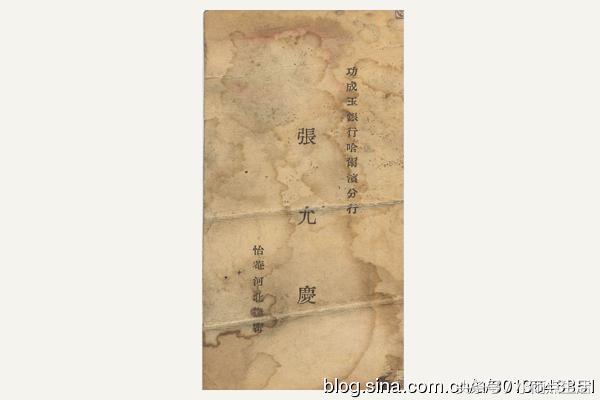 功成玉銀行哈爾濱分行
張允慶
怡菴 河北
blog.sina.com.cn/u/